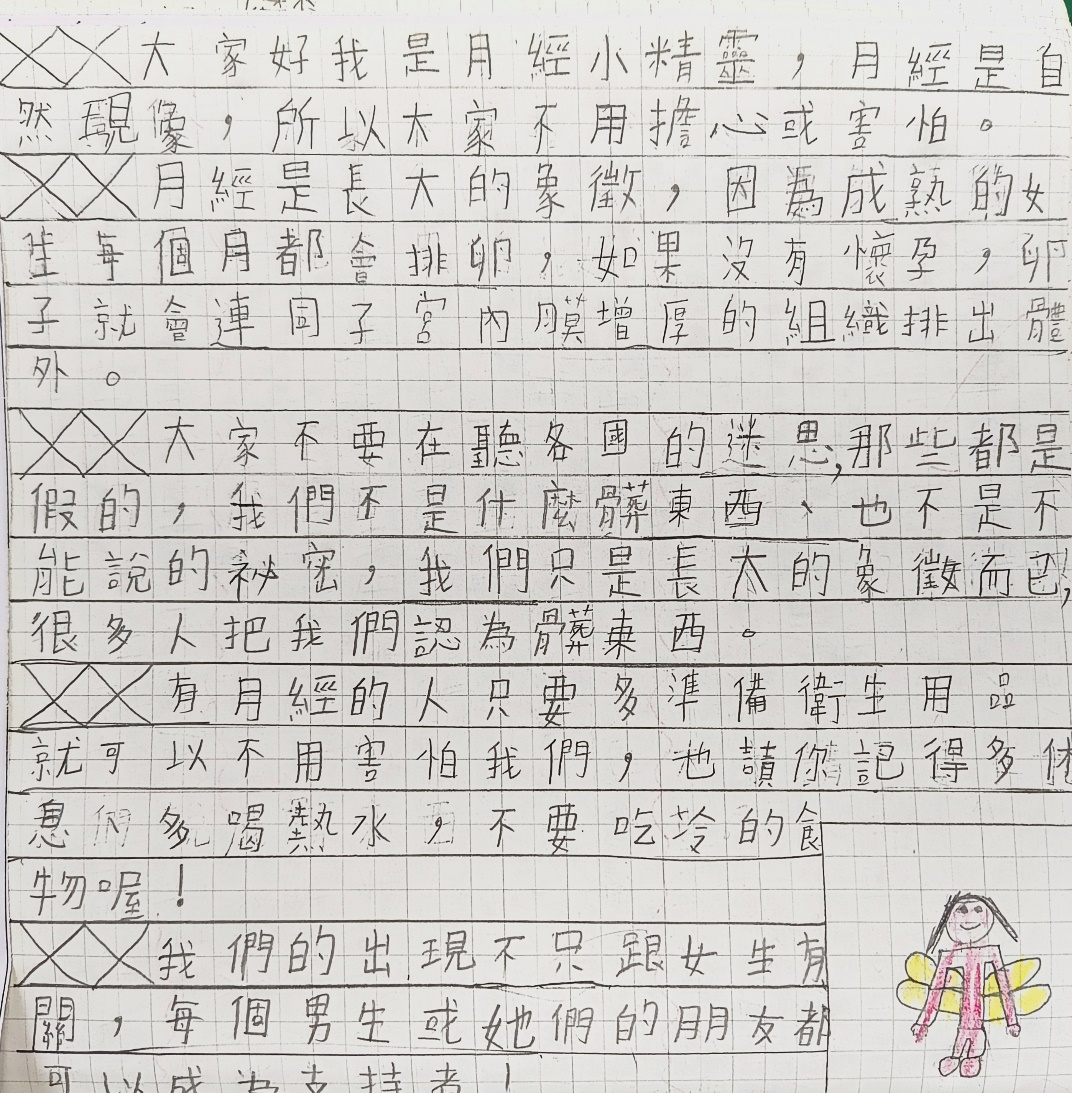 大家好我是月經小精靈，月經是自
然現像，所以大家不用擔心或害怕。
月經是長大的象徵，因為成熟的女
生每個月都會排卵，如果沒有懷孕，卵
子就會連同子宮內膜增厚的組織排出體
外。
大家不要在聽各國的迷思，那些都是
假的，我們不是什麼髒東西、也不是不
能說的祕密，我們只是長大的象徵而已，
很多人把我們認為髒東西。
有月經的人只要多準備衛生用品
就可以不用害怕我們，也請你記得多休
息多喝熱水，不要吃冷的食
物喔！
我們的出現不只跟女生有
關，每個男生或她們的朋友都
可以成為支持者！